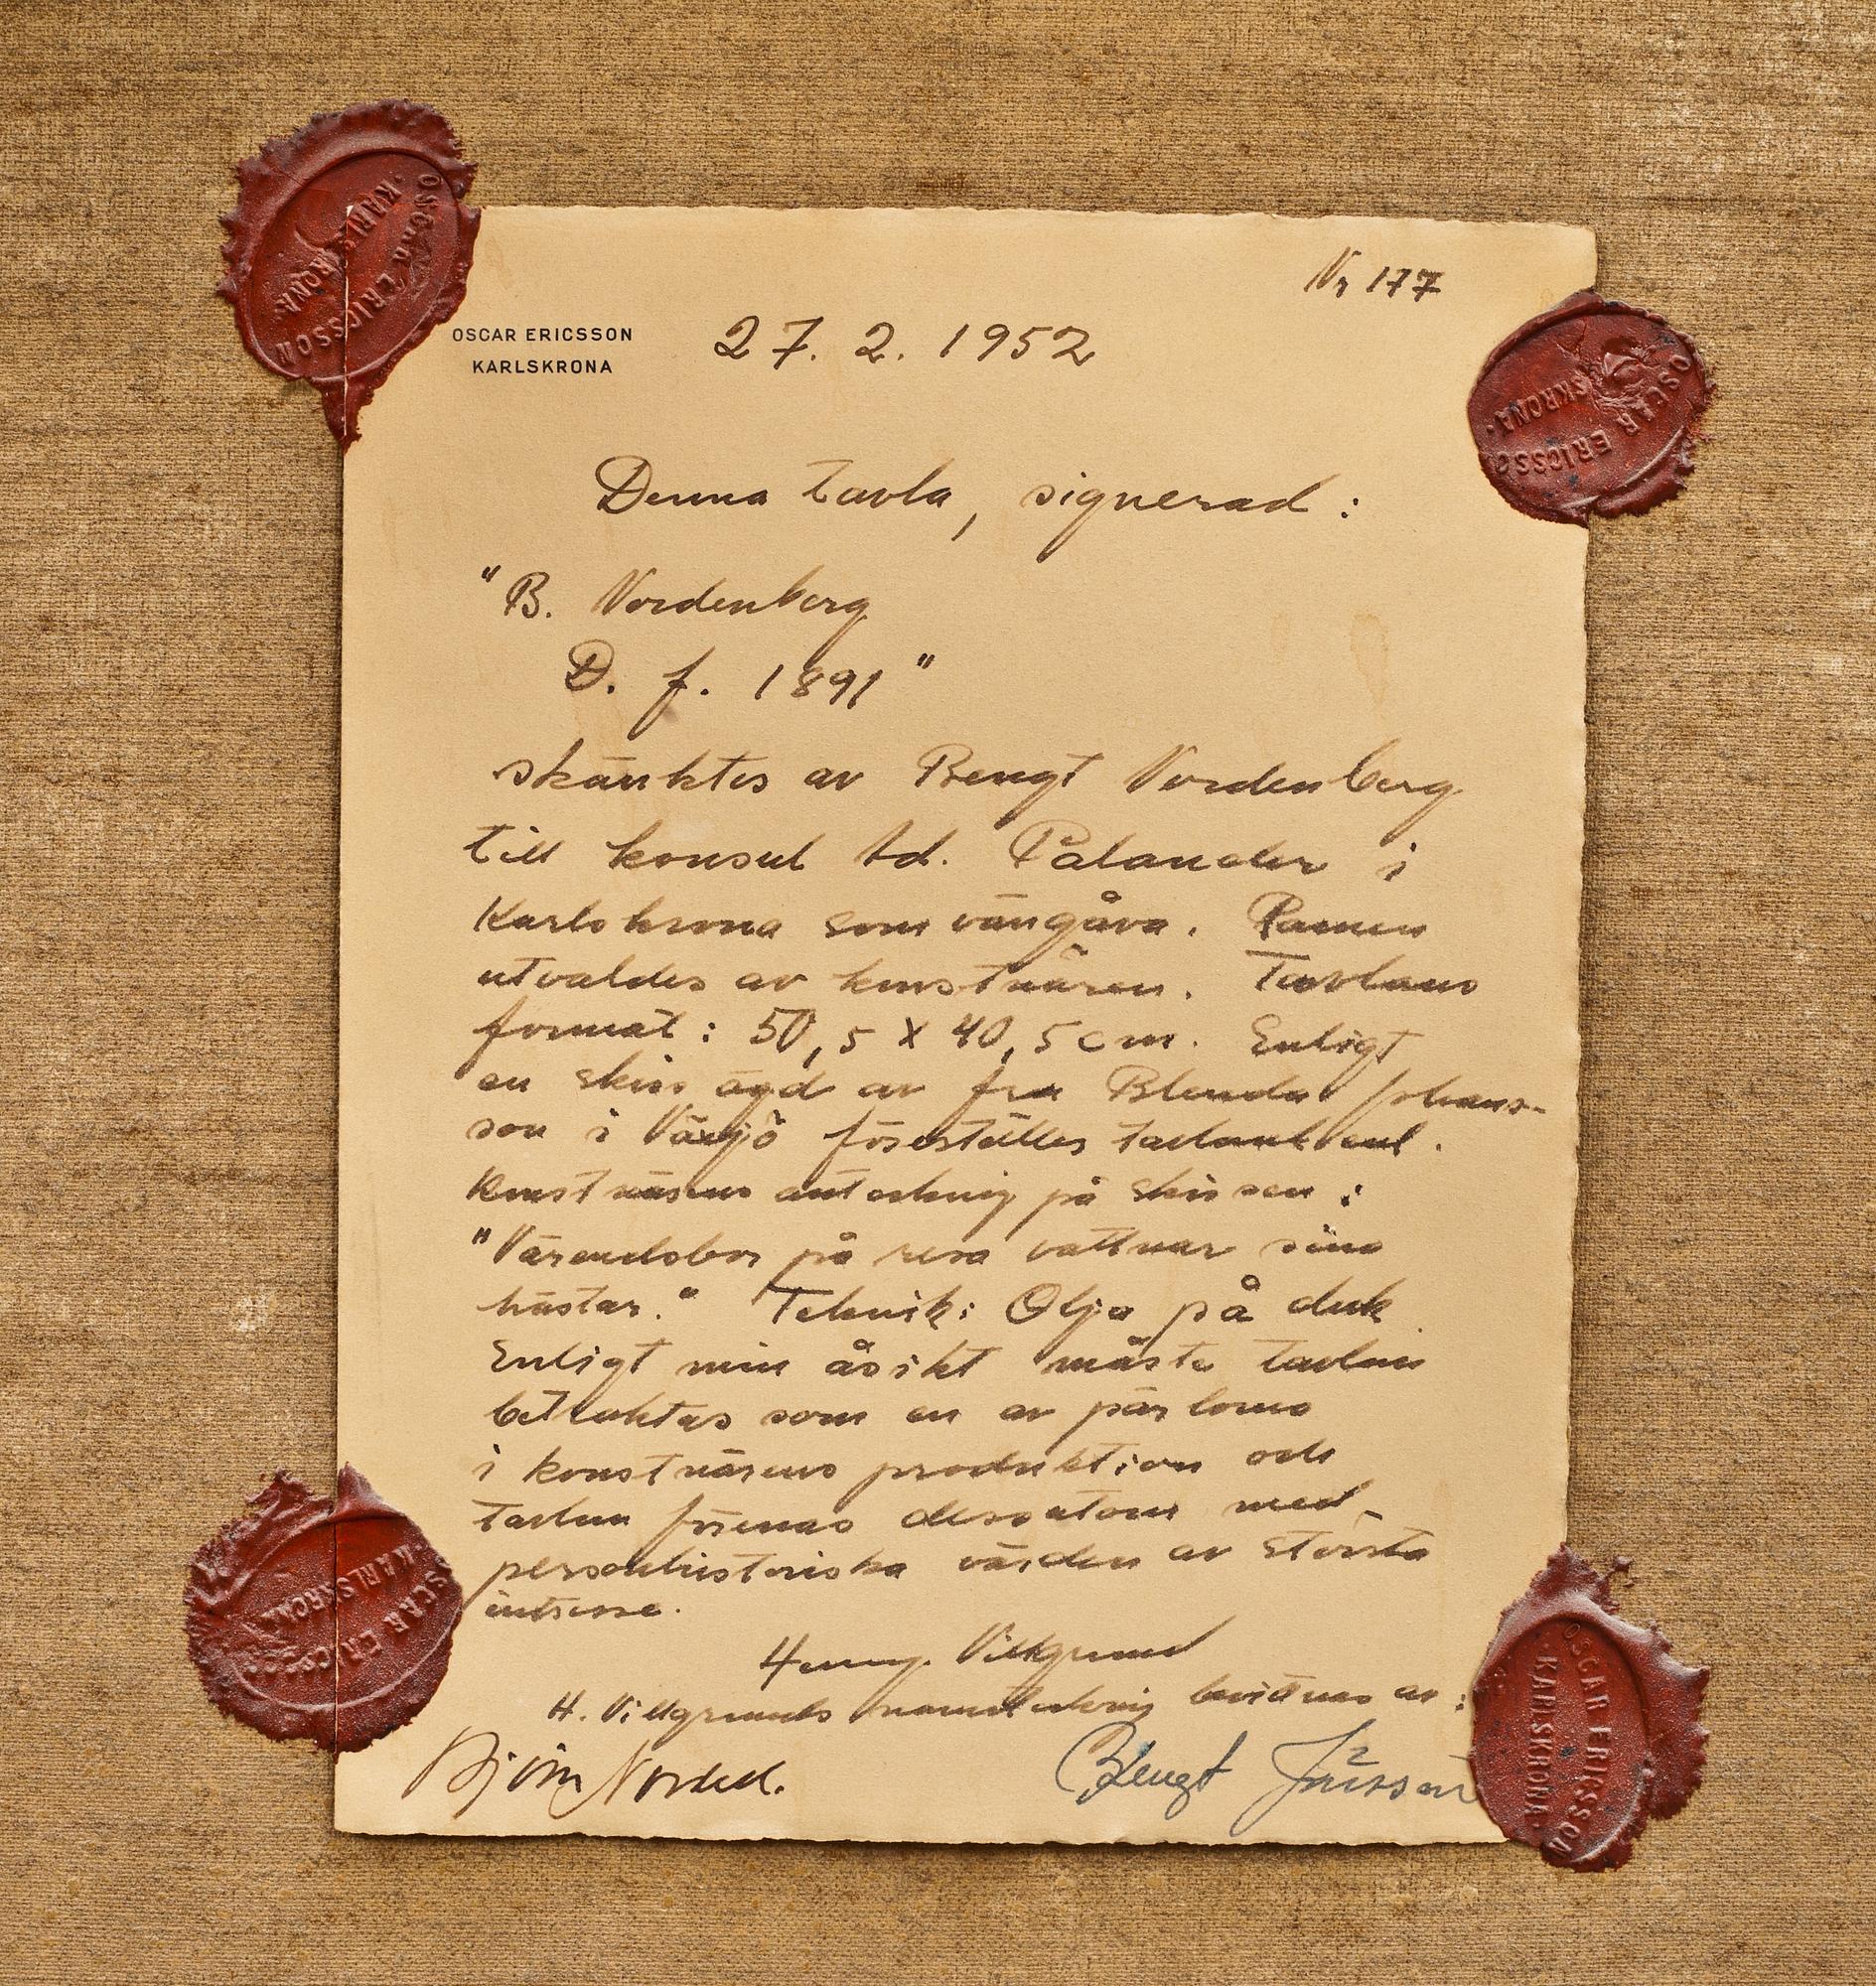 Nr 177
OSCAR ERICSSON
KARLSKRONA
27. 2. 1952
Denna tavla, signerad:
"B. Nordenberg
D. f. 1891"
skänktes av Bengt Nordenberg
till konsul Ad. Palander i
Karlskrona som vängåva. Ramen
utvaldes av konstnären. Tavlans
format: 50,5 x 40,5 cm. Enligt
en skiss ägd av fru Blenda Johans-
son i Växjö föreställer tavlan enl.
konstnärens anteckning på skissen:
"Värendsbor på resa vattnar sina
hästar." Teknik: Olja på duk
Enligt min åsikt måste tavlan
betraktas som en av pärlorna
i konstnärens produktion och
tavlan förenas dessutom med
personhistoriska värden av största
intresse.
Henny Villgrund
H. Villgrunds namnteckning bevittnas av:
Björn
Bengt
OSCAR ERICSSON
KARLSKRONA
OSCAR ERICSSON
SKRONA
OSCAR ERICSSON
KARLSKRONA
OSCAR ERICSSON
KARLSKRONA